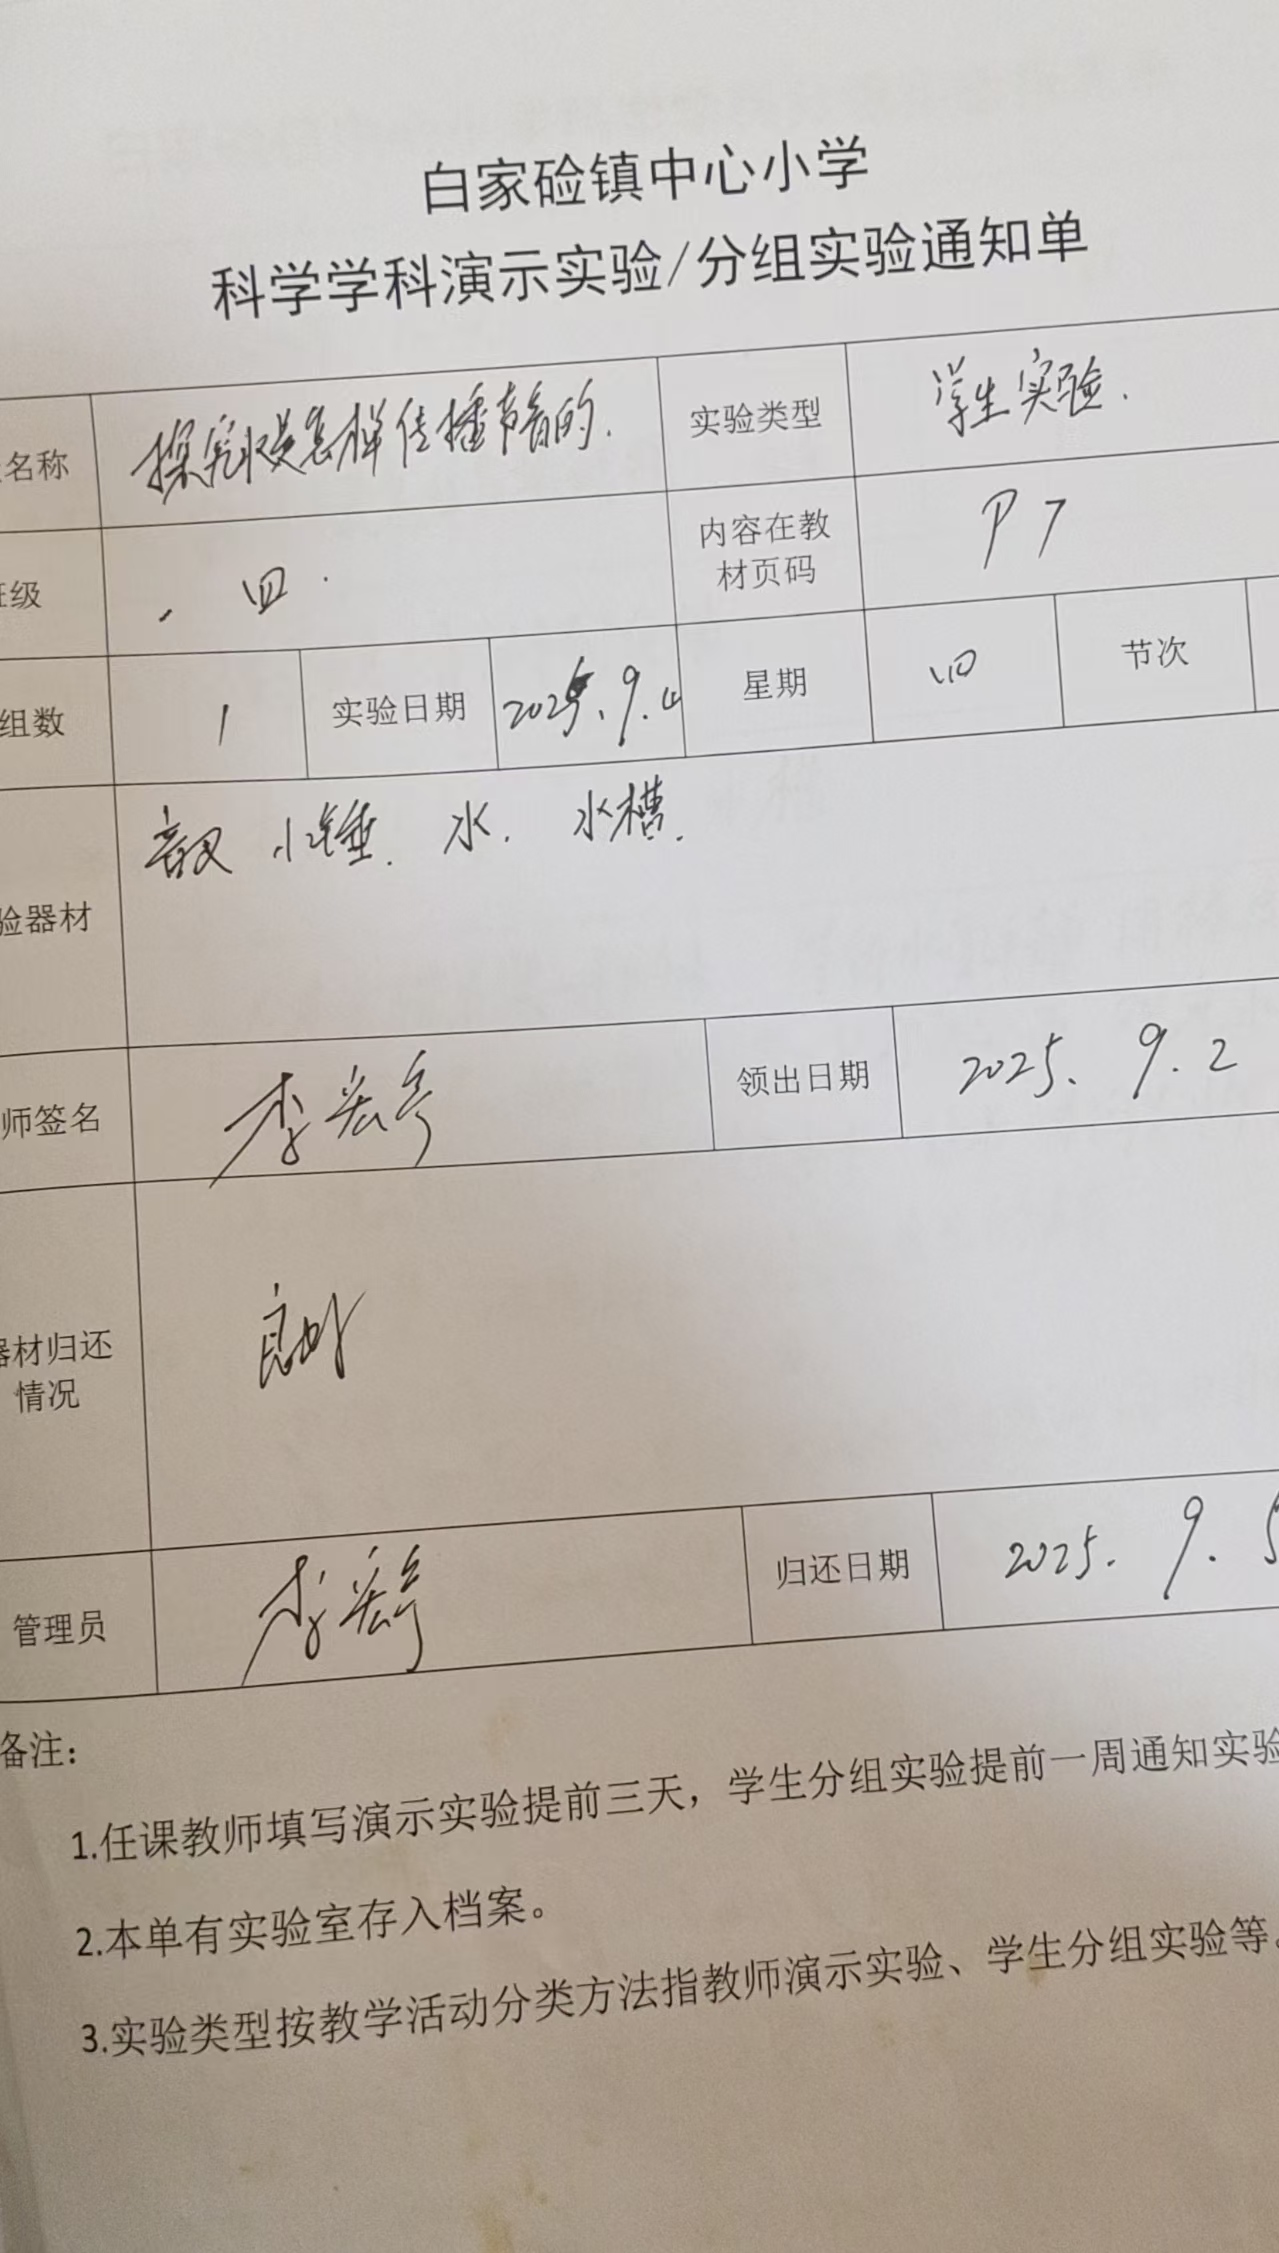 白家硷镇中心小学
科学学科演示实验/分组实验通知单
名称 探究水是怎样传播声音的. 实验类型 学生实验.
班级 四. 内容在教材页码 P7
组数 1 实验日期 2025.9.4 星期 四 节次
验器材 音叉 小锤. 水. 水槽.
师签名 李宏亭 领出日期 2025. 9. 2
器材归还情况 良好
管理员 李宏亭 归还日期 2025. 9. 5
备注:
1.任课教师填写演示实验提前三天，学生分组实验提前一周通知实验
2.本单有实验室存入档案。
3.实验类型按教学活动分类方法指教师演示实验、学生分组实验等。